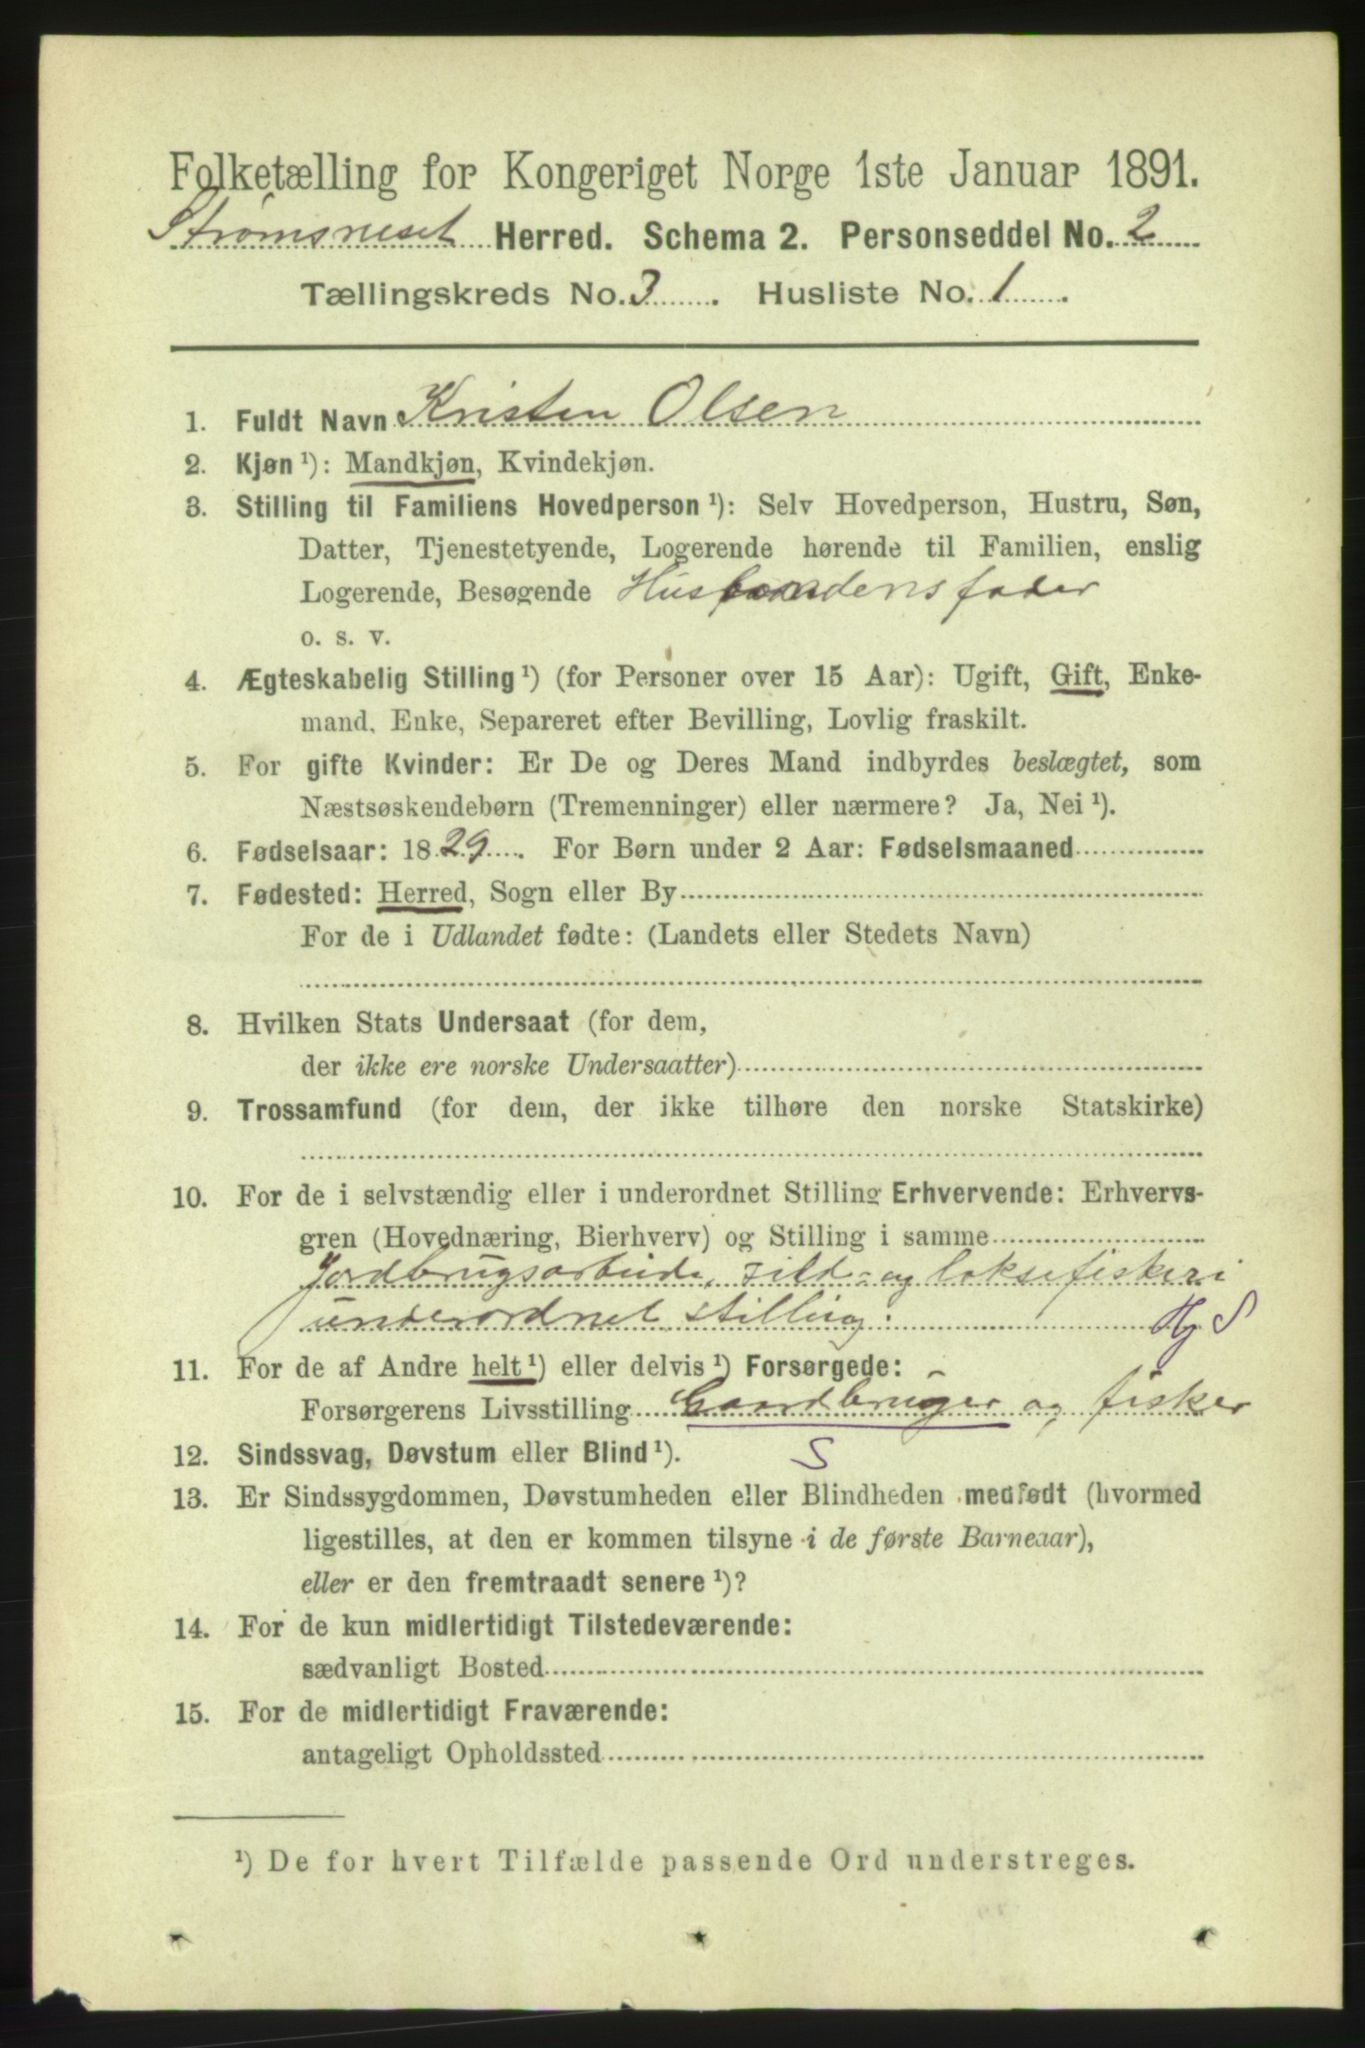 Folketælling for Kongeriget Norge 1ste Januar 1891.
Strømsneset Herred. Schema 2. Personseddel No. 2
Tællingskreds No. 3. Husliste No. 1.
1. Fuldt Navn Kristen Olsen
2. Kjøn ¹): Mandkjøn, Kvindekjøn.
3. Stilling til Familiens Hovedperson ¹): Selv Hovedperson, Hustru, Søn,
Datter, Tjenestetyende, Logerende hørende til Familien, enslig
Logerende, Besøgende Husbondens fader
o. s. v.
4. Ægteskabelig Stilling ¹) (for Personer over 15 Aar): Ugift, Gift, Enke-
mand, Enke, Separeret efter Bevilling, Lovlig fraskilt.
5. For gifte Kvinder: Er De og Deres Mand indbyrdes beslægtet, som
Næstsøskendebørn (Tremenninger) eller nærmere? Ja, Nei ¹).
6. Fødselsaar: 1829. For Børn under 2 Aar: Fødselsmaaned
7. Fødested: Herred, Sogn eller By
For de i Udlandet fødte: (Landets eller Stedets Navn)
8. Hvilken Stats Undersaat (for dem,
der ikke ere norske Undersaatter)
9. Trossamfund (for dem, der ikke tilhøre den norske Statskirke)
10. For de i selvstændig eller i underordnet Stilling Erhvervende: Erhvervs-
gren (Hovednæring, Bierhverv) og Stilling i samme
Jordbrugsarbeide, sild- og laksefiskeri
underordnet stilling. Hj S
11. For de af Andre helt ¹) eller delvis ¹) Forsørgede:
Forsørgerens Livsstilling Gaardbruger og fisker
12. Sindssvag, Døvstum eller Blind ¹). S
13. Er Sindssygdommen, Døvstumheden eller Blindheden medfødt (hvormed
ligestilles, at den er kommen tilsyne i de første Barneaar),
eller er den fremtraadt senere ¹)?
14. For de kun midlertidigt Tilstedeværende:
sædvanligt Bosted
15. For de midlertidigt Fraværende:
antageligt Opholdssted
¹) De for hvert Tilfælde passende Ord understreges.